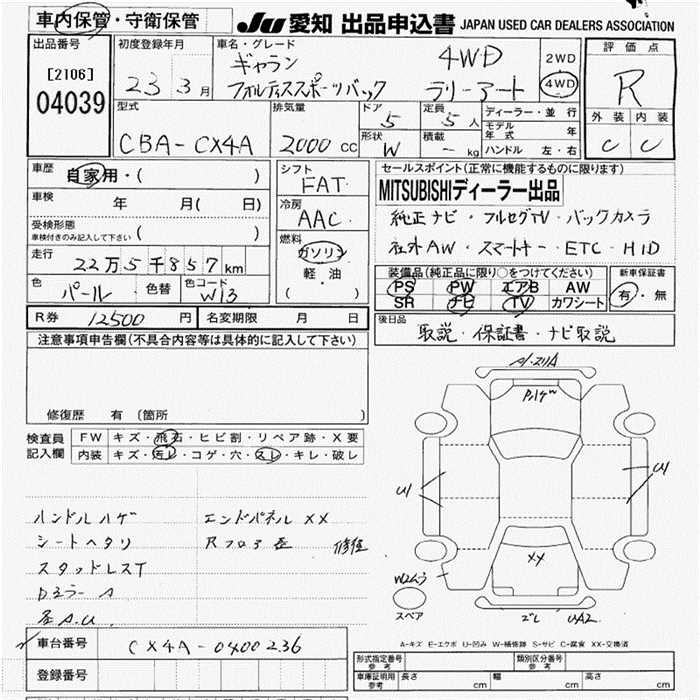 車内保管・守衛保管
JU 愛知 出品申込書 JAPAN USED CAR DEALERS ASSOCIATION
出品番号 初度登録年月 車名・グレード 評価点
[2106] 23 3月 ギャラン 4WD 2WD
04039 フォルティススポーツバック ラリーアート 4WD R
型式 排気量 ドア 定員 ディーラー・並行 外装 内装
CBA-CX4A 2000cc 5 5人 モデル年式 年 C C
形状 積載 ハンドル 左・右
W - kg
車歴 自家用・( ) シフト セールスポイント(正常に機能するものに限ります)
FAT MITSUBISHIディーラー出品
車検 年 月( 日) 冷房 純正ナビ・フルセグTV・バックカメラ
受検形態 AAC 社外AW・スマートキー・ETC・HID
車検付きのみ記入して下さい ( )
走行 燃料 装備品(純正品に限り○をつけてください) 新車保証書
22万5千857km ガソリン PS PW エアB AW 有・無
色 色替 色コード 軽・油 SR ナビ TV カワシート
パール W13 ( )
R券 12500円 名変期限 月 日 後日品
取説・保証書・ナビ取説
注意事項申告欄(不具合内容等は具体的に記入して下さい)
修復歴 有 〔箇所 〕
検査員 FW キズ・飛石・ヒビ割・リペア跡・X要
記入欄 内装 キズ・汚レ・コゲ・穴・スレ・キレ・破レ
ハンドルハゲ エンドパネル XX
シートヘタリ Rフロア 修復
スタッドレスT
XX
スペア
A-キズ E-エクボ U-凹み W-補修跡 S-サビ C-腐食 XX-交換済
車台番号 CX4A-0400236
登録番号
形式指定番号 参考 類別区分番号 参考
車庫証明用 参考 長さ cm 幅 cm 高さ cm